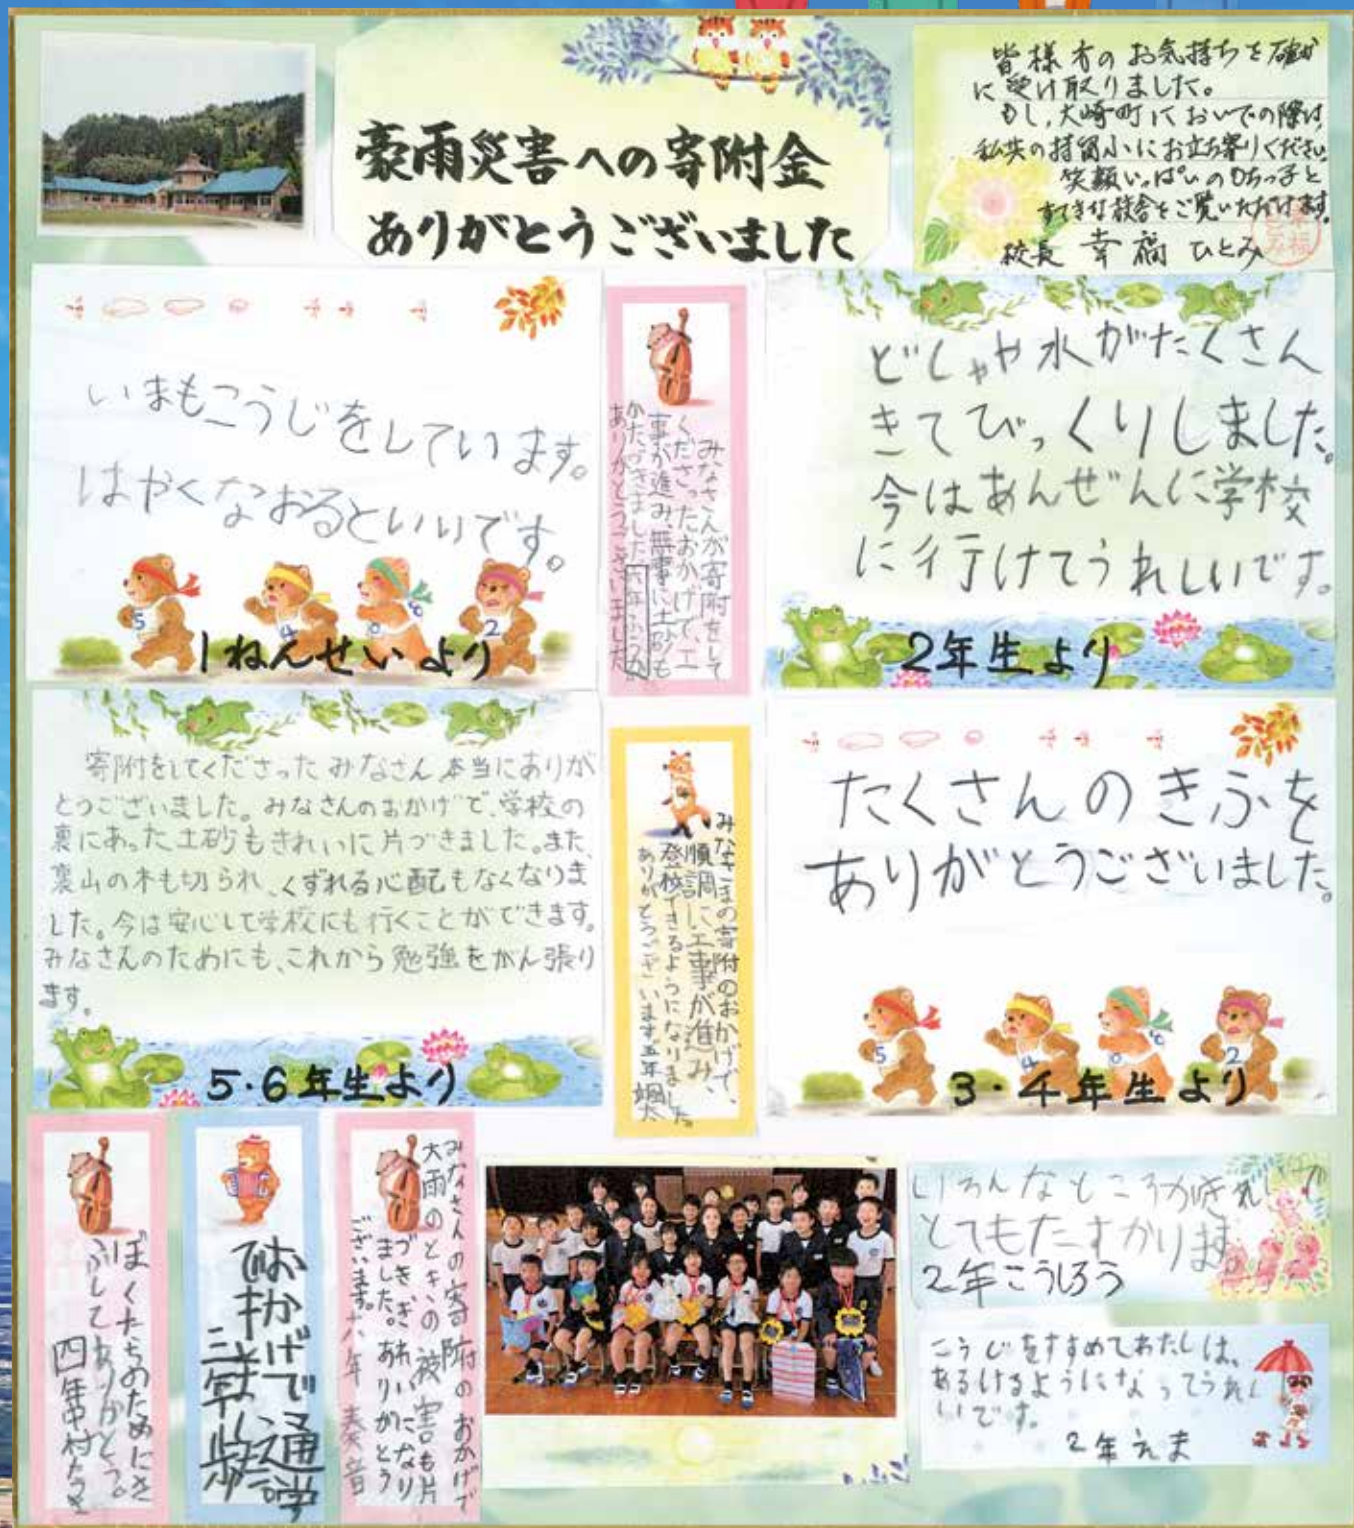 豪雨災害への寄附金
ありがとうございました
皆様方のお気持ちを確か
に受け取りました。
もし、大崎町においでの際は、
私共の持留小にお立ち寄りください。
笑顔いっぱいのもちっ子と
すてきな校舎をご覧いただけます。
校長 幸福 ひとみ
いまもこうじをしています。
はやくなおるといいです。
1ねんせいより
みなさんが寄附をして
くださったおかげで、工
事が進み、無事に土砂も
かたづきました
ありがとうございました
どしゃや水がたくさん
きてびっくりしました。
今はあんぜんに学校
に行けてうれしいです。
2年生より
寄附をしてくださったみなさん本当にありが
とうございました。みなさんのおかげで、学校の
裏にあった土砂もきれいに片づきました。また、
裏山の木も切られ、くずれる心配もなくなりま
した。今は安心して学校にも行くことができます。
みなさんのためにも、これから勉強をがん張り
ます。
5・6年生より
みなさまの寄附のおかげで、
順調に工事が進み、
登校できるようになりました。
ありがとうございます。五年 颯大
たくさんのきふを
ありがとうございました。
3・4年生より
ぼくたちのためにき
ふしてありがとう。
四年中村たつき
おかげで通学
できまし
三年 歩
みなさんの寄附のおかげで
大雨のときの被害も片
づき、きれいになり
ました。ありがとう
ございます。六年 奏音
いろんなところが
とてもたすかります。
2年こうしろう
こうじをすすめてわたしは、
あるけるようになってうれし
いです。
2年 えま
5
4
2
5
4
2